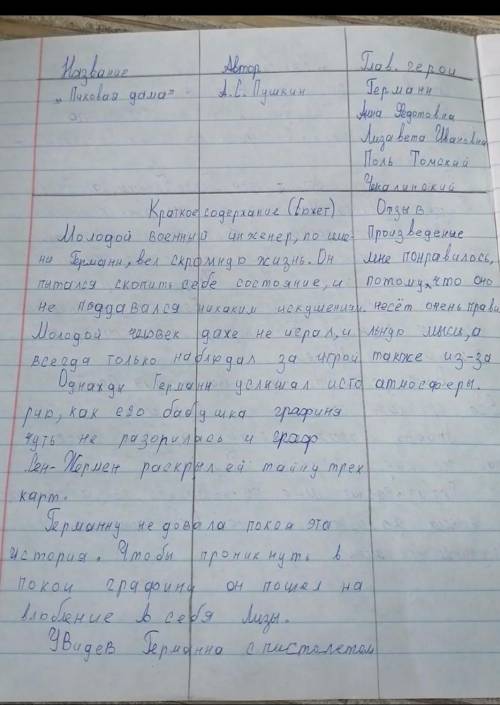 Название Автор Глав. герои
„Пиковая дама" А.С. Пушкин Германн
Анна Федотовна
Лизавета Ивановна
Поль Томский
Чекалинский
Краткое содержание (Сюжет) Отзыв
Молодой военный инженер, по име- Произведение
ни Германн, вел скромную жизнь. Он мне понравилось,
пытался скопить себе состояние, и потому, что оно
не поддавался никаким искушениям. несёт очень прави
Молодой человек даже не играл, и льную мысль, а
всегда только наблюдал за игрой также из-за
Однажды Германн услышал исто атмосферы.
рию, как его бабушка графиня
чуть не разорилась и граф
Сен-Жермен раскрыл ей тайну трех
карт.
Германну не довала покоя эта
история. Чтобы проникнуть в
покои графини он пошел на
влюбление в себя Лизы.
Увидев Германна с пистолетом